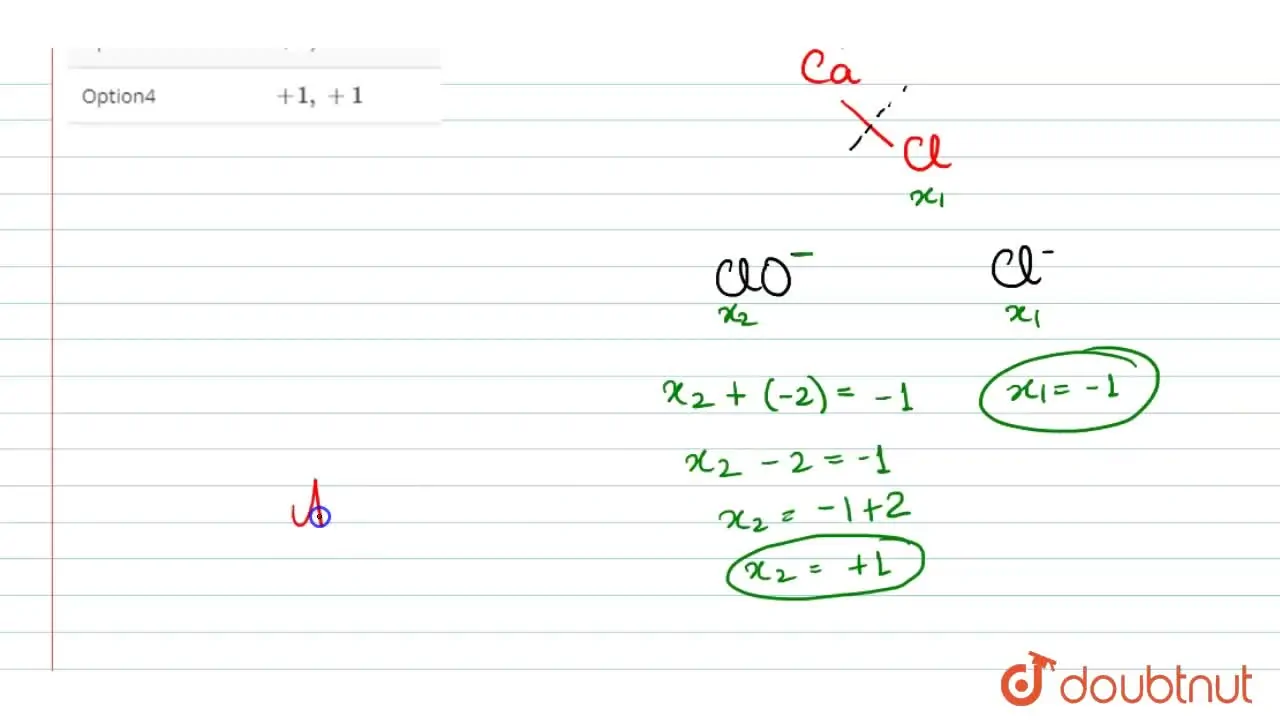 Option4 +1, +1
Ca
Cl
x₁
ClO⁻ Cl⁻
x₂ x₁
x₂ + (-2) = -1 x₁ = -1
x₂ - 2 = -1
x₂ = -1+2
x₂ = +1
doubtnut